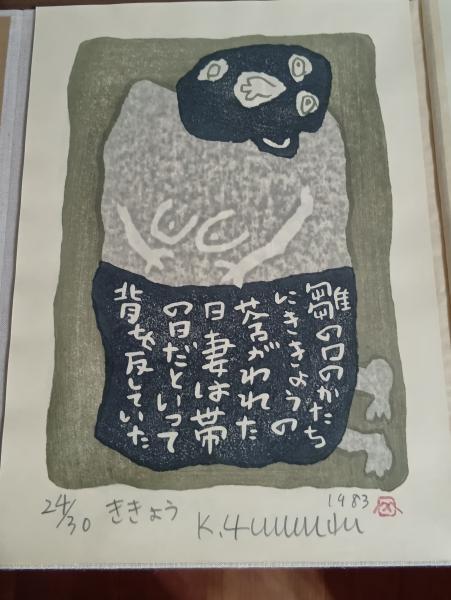 雛の口のかたち
にききょうの
莟がわれた
日妻は帯
の日だといって
背を反していた
24/30 ききょう 1983
K.